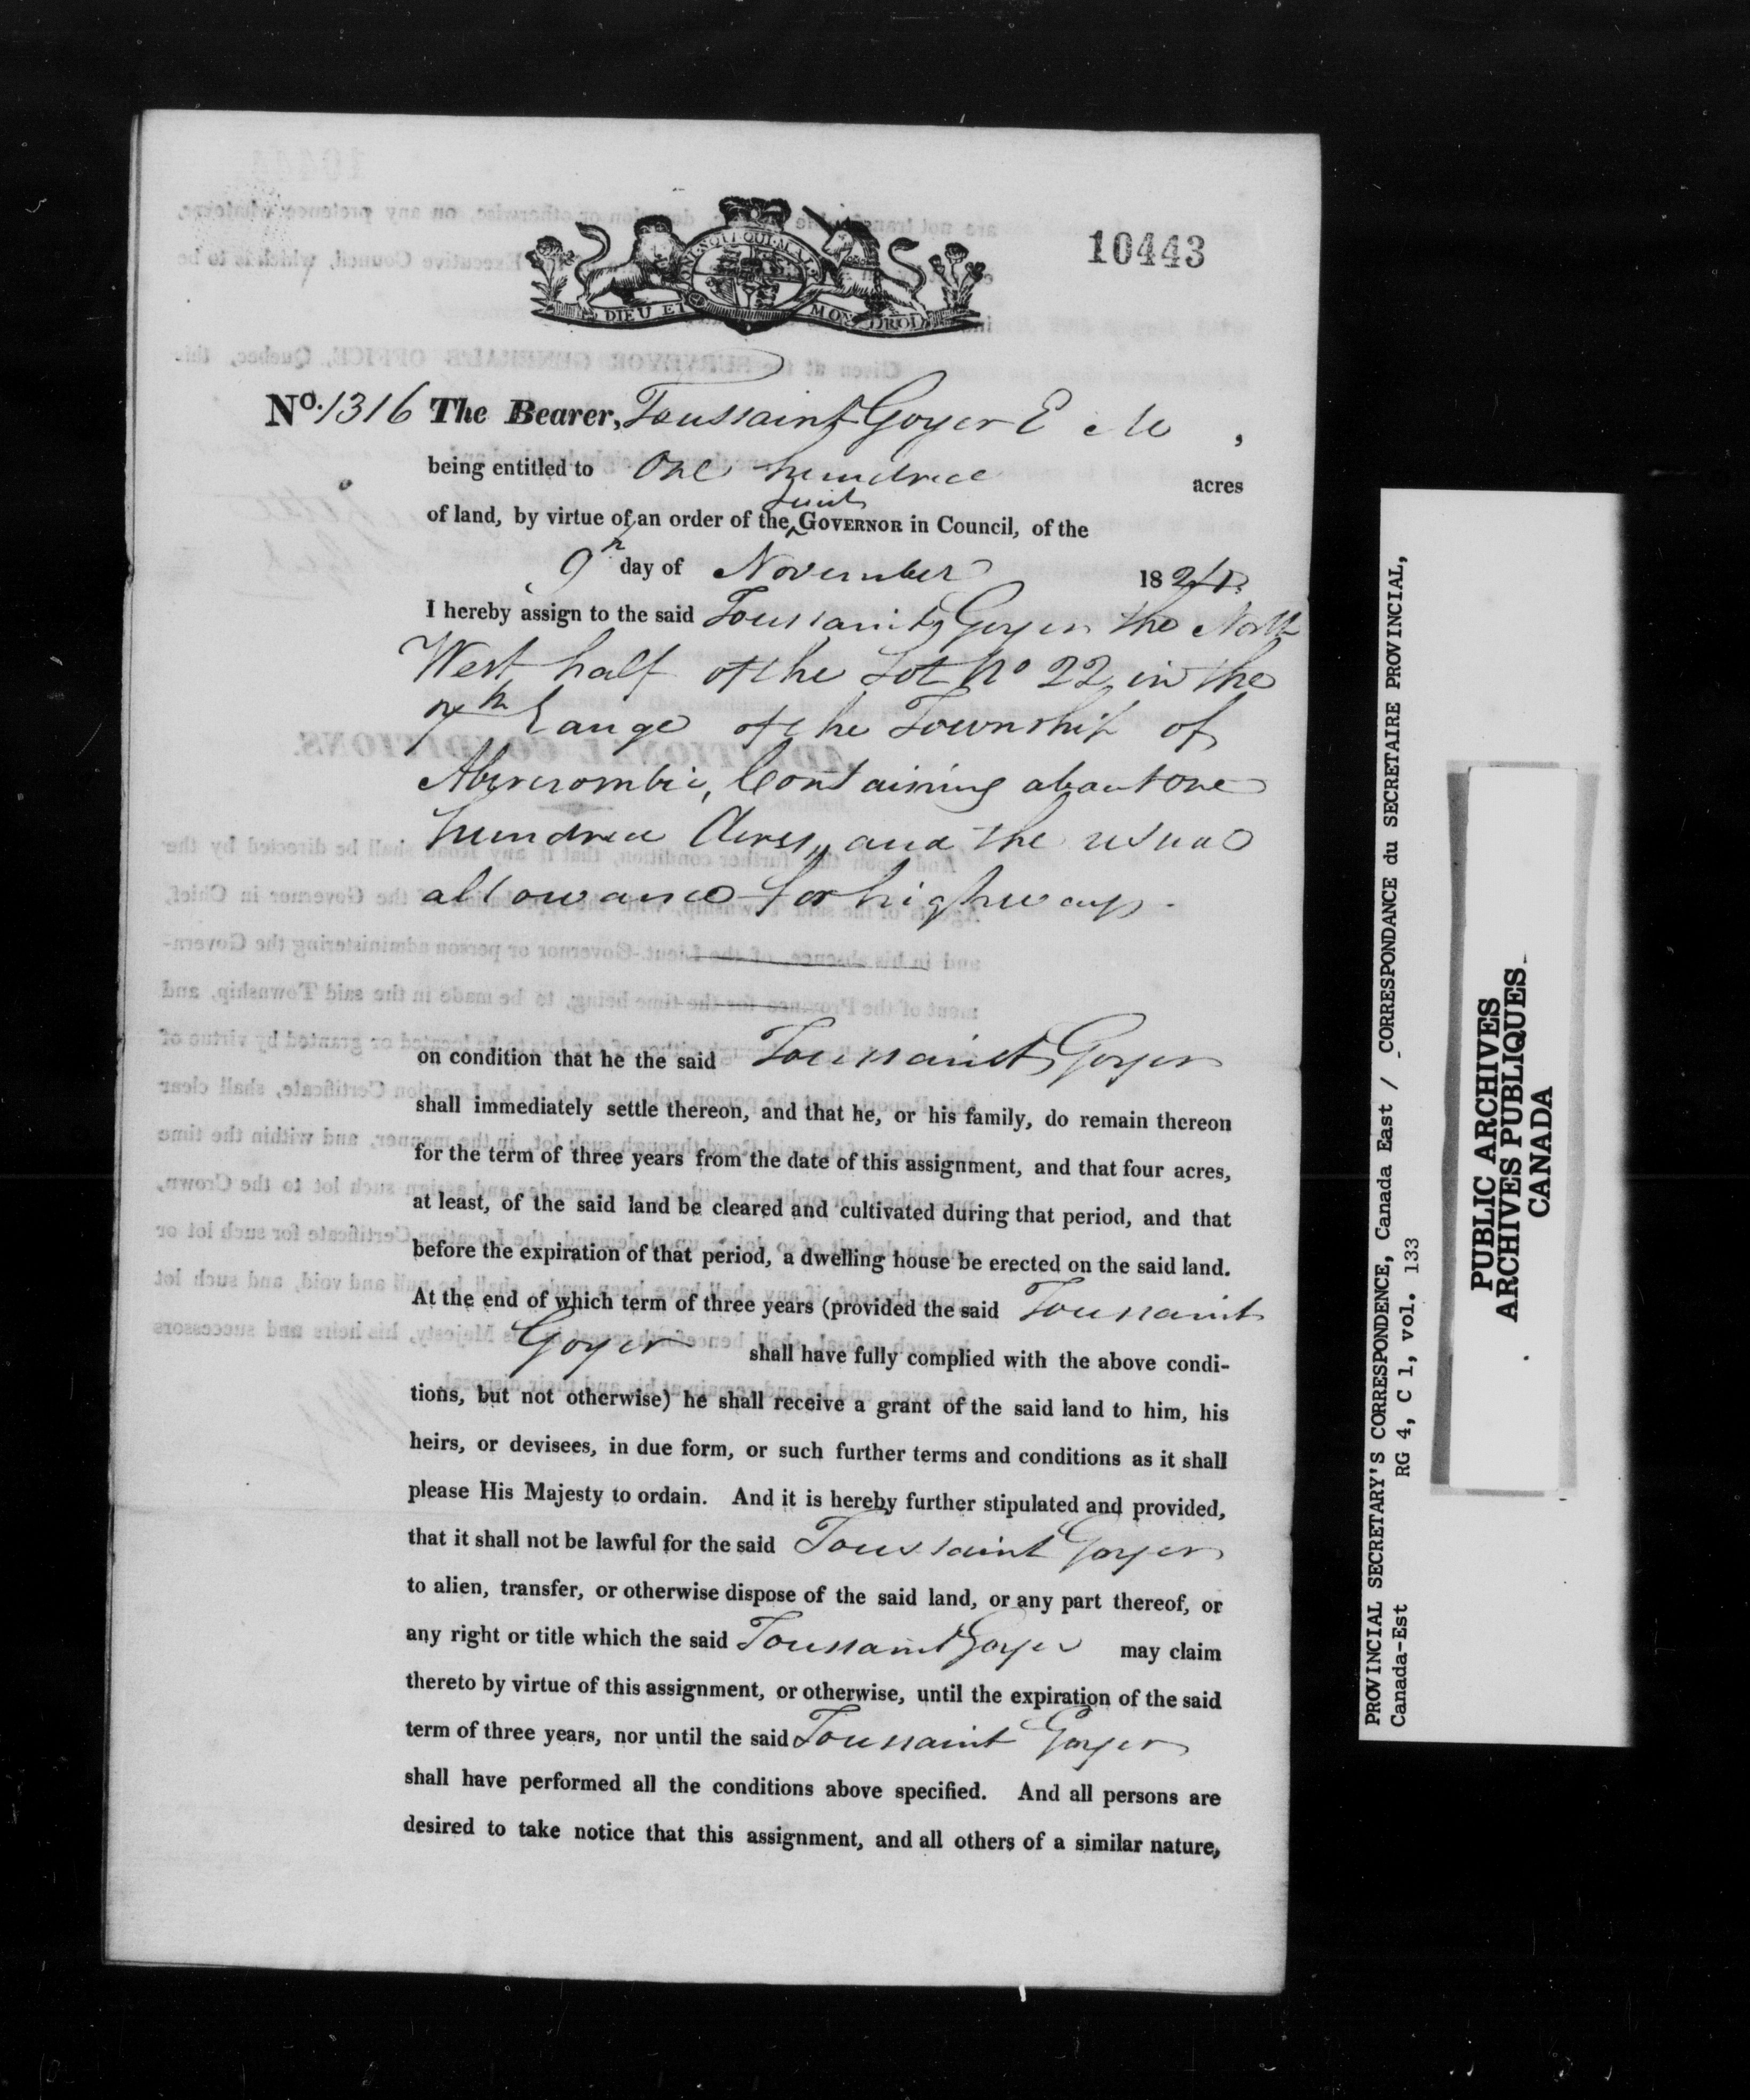 10443
HONI SOIT QUI MAL
DIEU ET MON DROIT
No. 1316 The Bearer, Toussaint Goyer E M,
being entitled to One hundred acres
of land, by virtue of an order of the Lieut GOVERNOR in Council, of the
9th day of November 1824
I hereby assign to the said Toussaint Goyer the North
West half of the Lot No 22 in the
7th Range of the Township of
Abercrombie, Containing about one
hundred Acres, and the usual
allowance for highways.
on condition that he the said Toussaint Goyer
shall immediately settle thereon, and that he, or his family, do remain thereon
for the term of three years from the date of this assignment, and that four acres,
at least, of the said land be cleared and cultivated during that period, and that
before the expiration of that period, a dwelling house be erected on the said land.
At the end of which term of three years (provided the said Toussaint
Goyer shall have fully complied with the above condi-
tions, but not otherwise) he shall receive a grant of the said land to him, his
heirs, or devisees, in due form, or such further terms and conditions as it shall
please His Majesty to ordain. And it is hereby further stipulated and provided,
that it shall not be lawful for the said Toussaint Goyer
to alien, transfer, or otherwise dispose of the said land, or any part thereof, or
any right or title which the said Toussaint Goyer may claim
thereto by virtue of this assignment, or otherwise, until the expiration of the said
term of three years, nor until the said Toussaint Goyer
shall have performed all the conditions above specified. And all persons are
desired to take notice that this assignment, and all others of a similar nature,
PROVINCIAL SECRETARY'S CORRESPONDENCE, Canada East / CORRESPONDANCE du SECRETAIRE PROVINCIAL,
Canada-Est RG 4, C 1, vol. 133
PUBLIC ARCHIVES
ARCHIVES PUBLIQUES
CANADA